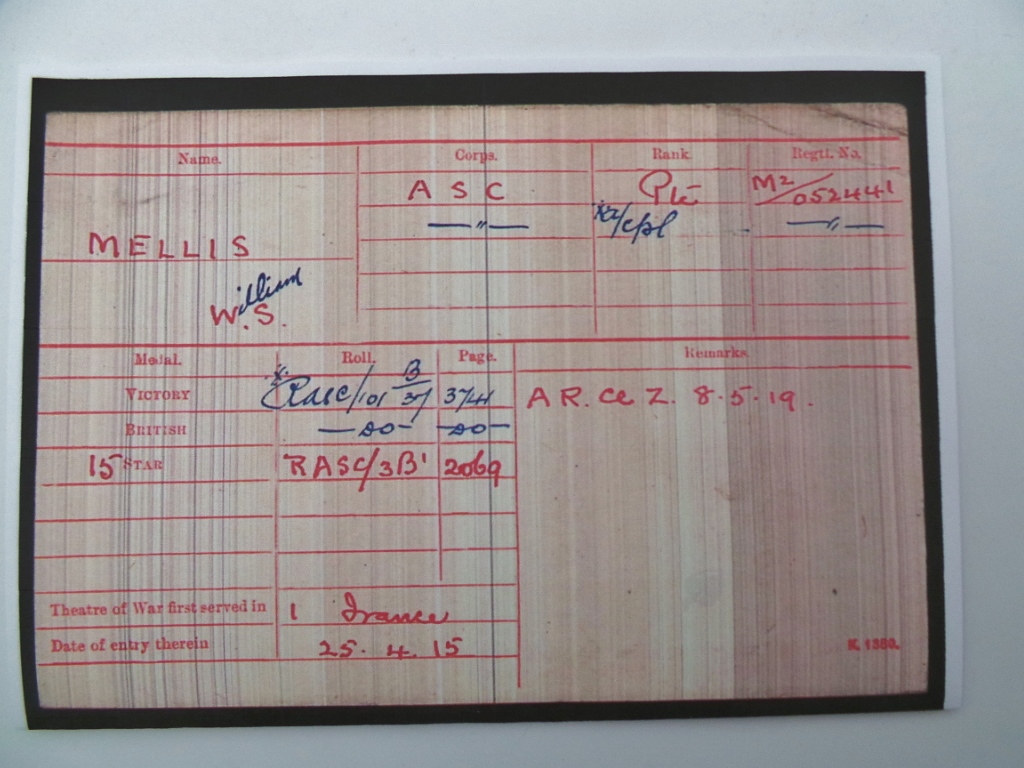 Name. Corps. Rank Regtl. No.
A S C Pte M2/052441
—"— /Cpl —"—
MELLIS
William
W.S.
Medal. Roll. Page. Remarks.
VICTORY RASC/101 B/37 3741 A R. Cl Z. 8.5.19.
BRITISH —DO— —DO—
15 STAR RASC/3B' 2069
Theatre of War first served in 1 France
Date of entry therein 25.4.15
K. 1380.